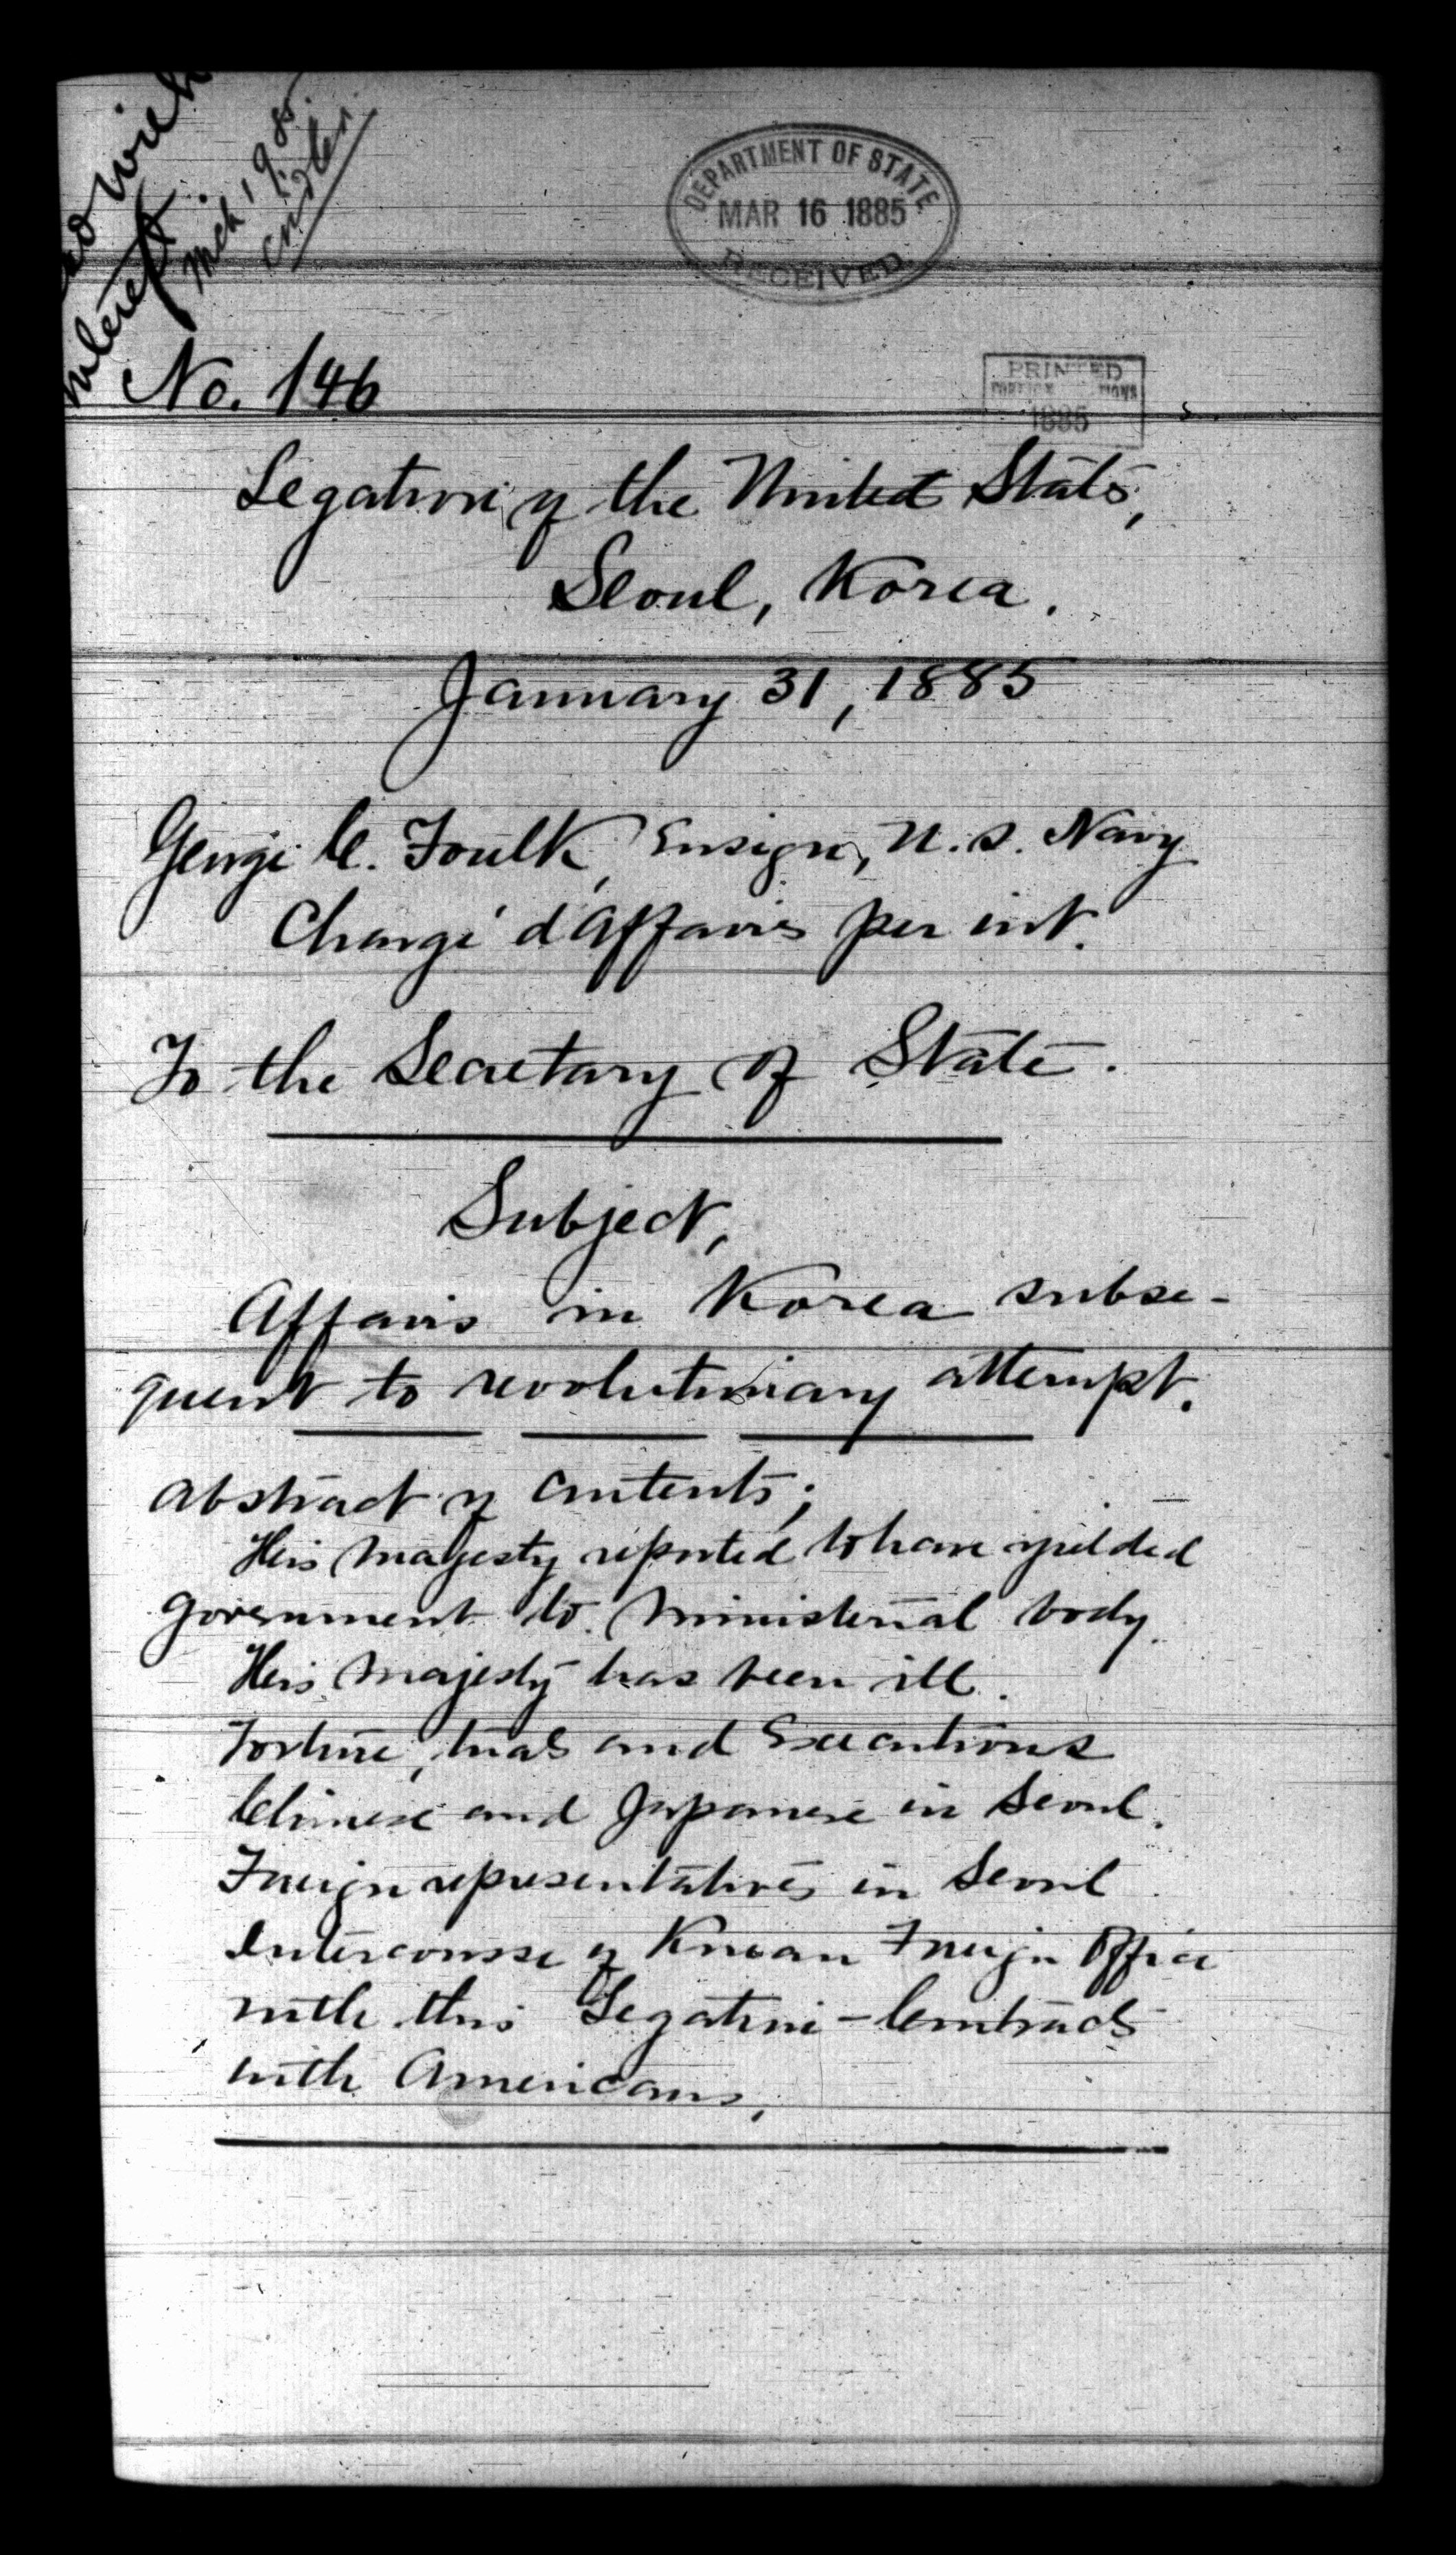 DEPARTMENT OF STATE
MAR 16 1885
RECEIVED
interest
No. 146
PRINTED
1885
Legation of the United States,
Seoul, Korea.
January 31, 1885
George C. Foulk, Ensign, U.S. Navy
Chargé d'Affaires per int.
To the Secretary of State.
Subject,
Affairs in Korea subse-
quent to revolutionary attempt.
Abstract of contents;
His Majesty reported to have yielded
government to Ministerial body.
His Majesty has been ill.
Torture, trials and Executions
Chinese and Japanese in Seoul.
Foreign representatives in Seoul
Intercourse of Korean Foreign Office
with this Legation - Contracts
with Americans.